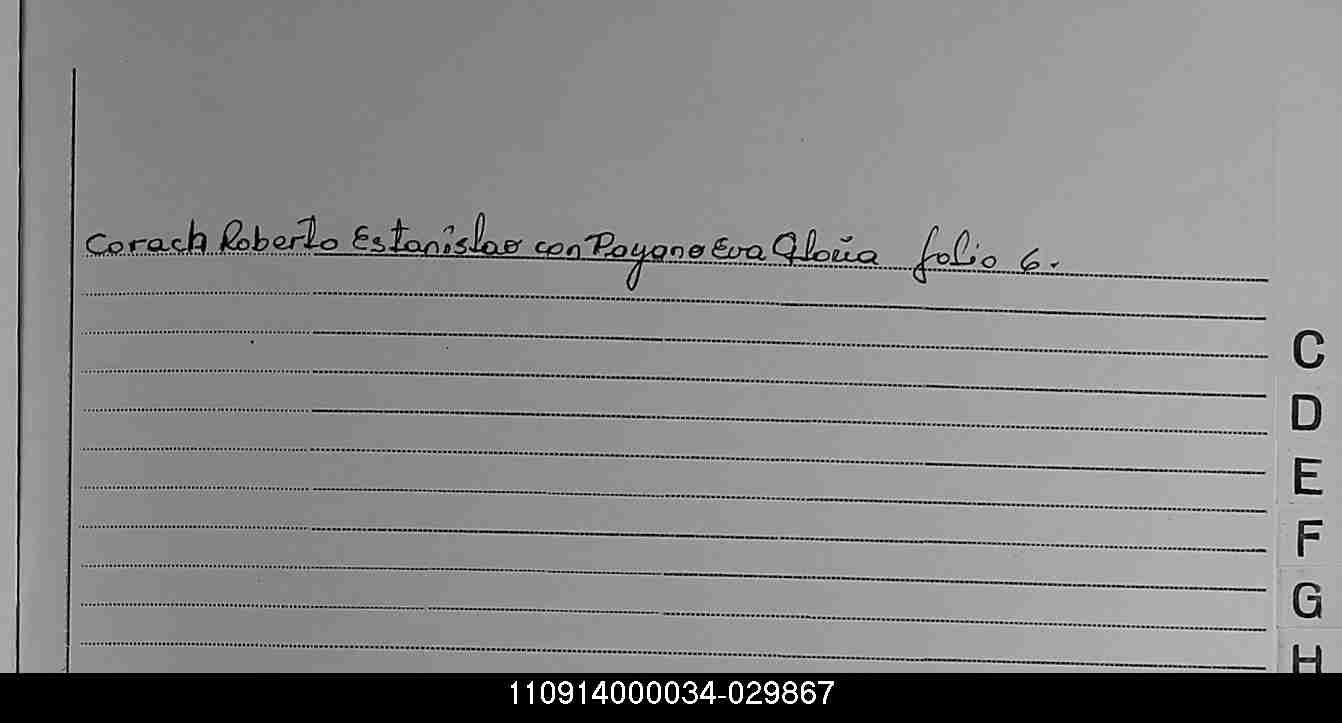 Corach Roberto Estanislao con Poyano Eva Gloria folio 6.
C
D
E
F
G
H
110914000034-029867